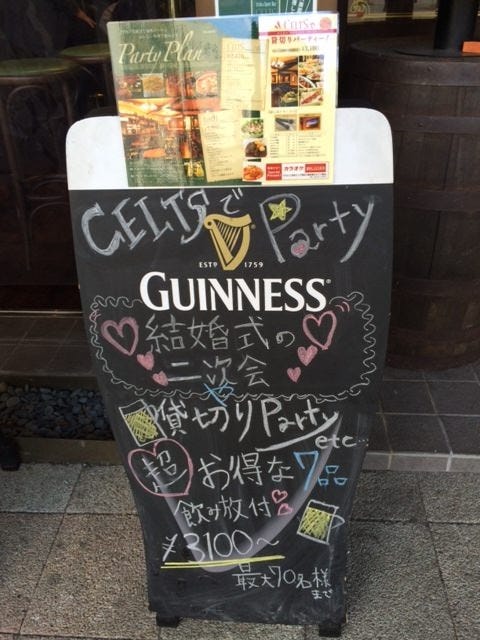 Party Plan
CELTSで
貸切りパーティー!
カラオケ
CELTSで Party
ESTD 1759
GUINNESS
結婚式の
二次会
や
貸切りParty
etc...
超お得な7品
飲み放付
¥3100~
最大70名様
まで